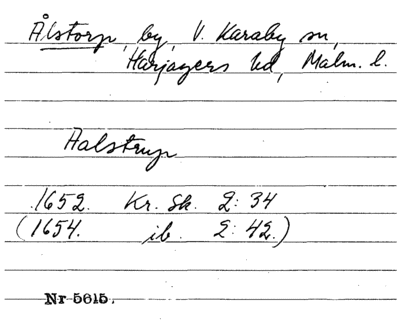 Ålstorp, by, V. Karaby sn,
Harjagers hd, Malm. l.
Aalstrup
1652. Kr. Sk. 2: 34
(1654. ib. 2: 42.)
Nr 5615.